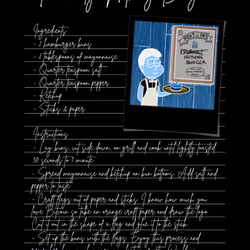 Ingredients
- 2 hamburger buns
- 2 tablespoons of mayonnaise
- Quarter teaspoon salt
- Quarter teaspoon pepper
- Ketchup
- Sticks & paper
Instructions
- Lay buns, cut side down on grill and cook until lightly toasted
30 seconds to 1 minute
- Spread mayonnaise and ketchup on bun bottoms. Add salt and
pepper to taste
- Craft flags out of paper and sticks. I know how much you
love so take an orange craft paper and draw the logo
Cut it out in the shape of a flag and glue it to the stick
- Set up the buns with the flags. Enjoy this process and